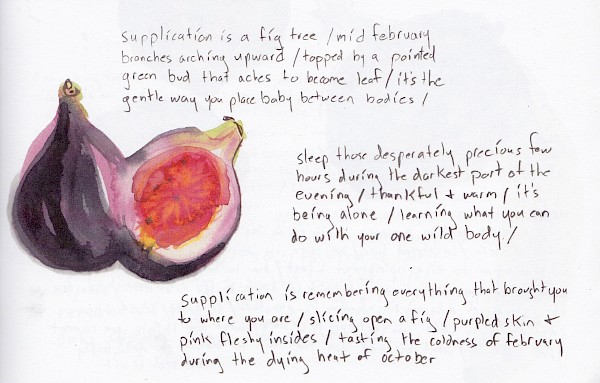 supplication is a fig tree / mid february
branches arching upward / topped by a pointed
green bud that aches to become leaf / it's the
gentle way you place baby between bodies /
sleep those desperately precious few
hours during the darkest part of the
evening / thankful + warm / it's
being alone / learning what you can
do with your one wild body /
supplication is remembering everything that brought you
to where you are / slicing open a fig / purpled skin +
pink fleshy insides / tasting the coldness of february
during the dying heat of october